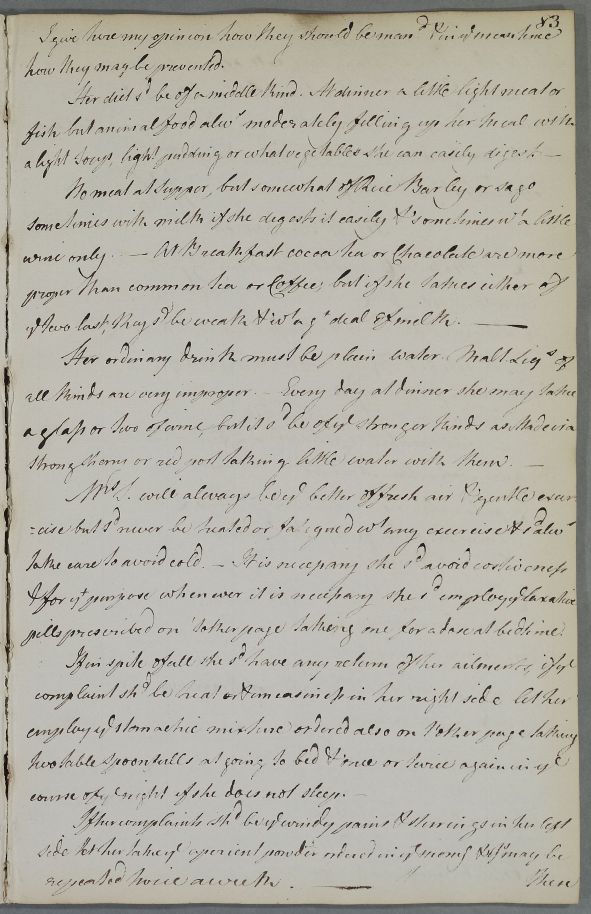 83
I give here my opinion how they should be man^d & in y^e mean time
how they may be prevented.
Her diet s^d be of a middle kind. At dinner a little light meat or
fish but animal food alw^s moderately filling up her meal with
a light soup, light pudding or what vegetables she can easily digest. —
No meat at Supper, but somewhat of Rice Barley or sago
sometimes with milk if she digests it easily & sometimes w^t a little
wine only. — At Breakfast cocoa tea or Chacolate are more
proper than common tea or Coffee, but if she takes either of
y^e two last, they s^d be weak & w^t a g^t deal of milk. —
Her ordinary drink must be plain water. Malt Liq^rs of
all kinds are very improper. — Every day at dinner she may take
a glass or two of wine, but it s^d be of y^e stronger kinds as Madeira
strong or red port taking little water with them. —
Mrs S. will always be y^e better of fresh air & gentle exer
=cise but s^d never be heated or fatigued w^t any exercise & s^d alw^s
take care to avoid cold. — It is necessary she s^d avoid costiveness
& for y^t purpose whenever it is necessary she s^d employ y^e laxative
pills prescribed on t'other page taking one for a dose at bedtime.
If in spite of all she s^d have any return of her ailments, if y^e
complaint sh^d be heat or uneasiness in her right side let her
employ y^e stomachic mixture ordered also on t'other page taking
two table spoonfulls at going to bed & once or twice again in y^e
course of y^e night if she does not sleep. —
If her complaints sh^d be y^e windy pains & in her left
side let her take y^e aperient powder ordered in y^e morn^g & may be
repeated twice a week. —
Then